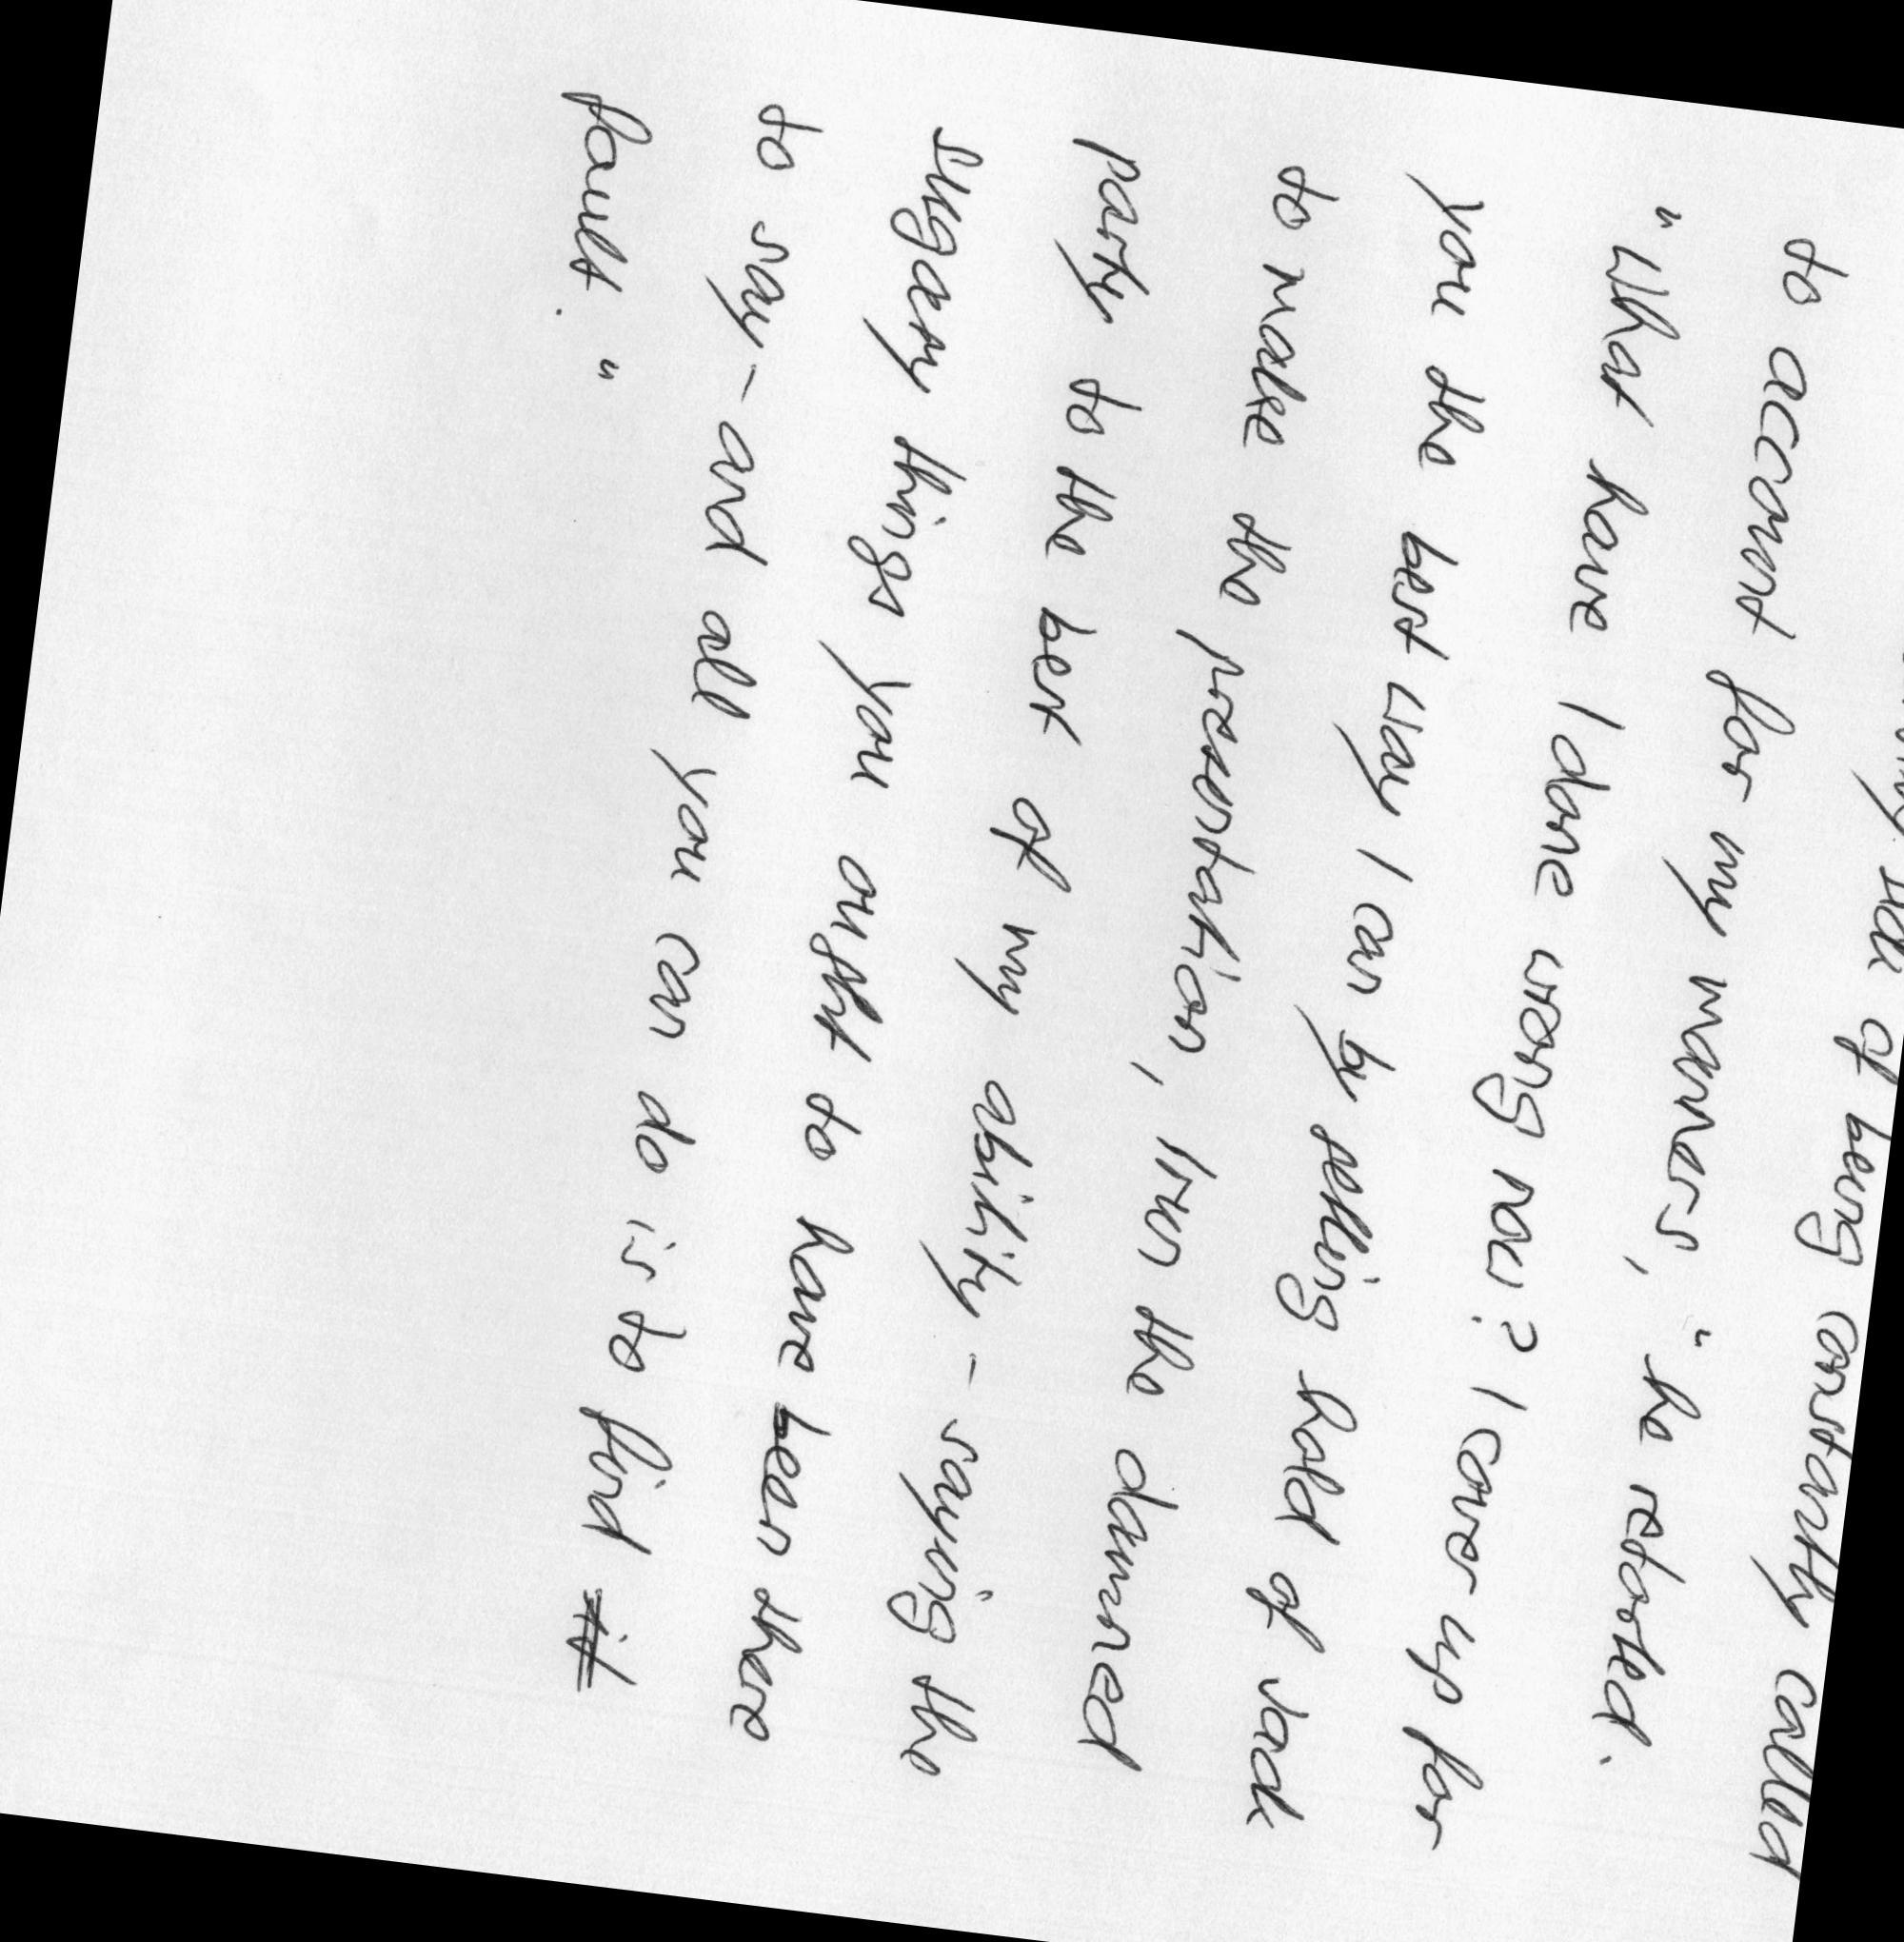 of being constantly called
to account for my manners," he retorted.
"What have I done wrong now? I cover up for
you the best way I can by selling hold of Jack
to make the presentation, I run the damned
party to the best of my ability - saying the
sugary things you ought to have been there
to say - and all you can do is to find
fault."